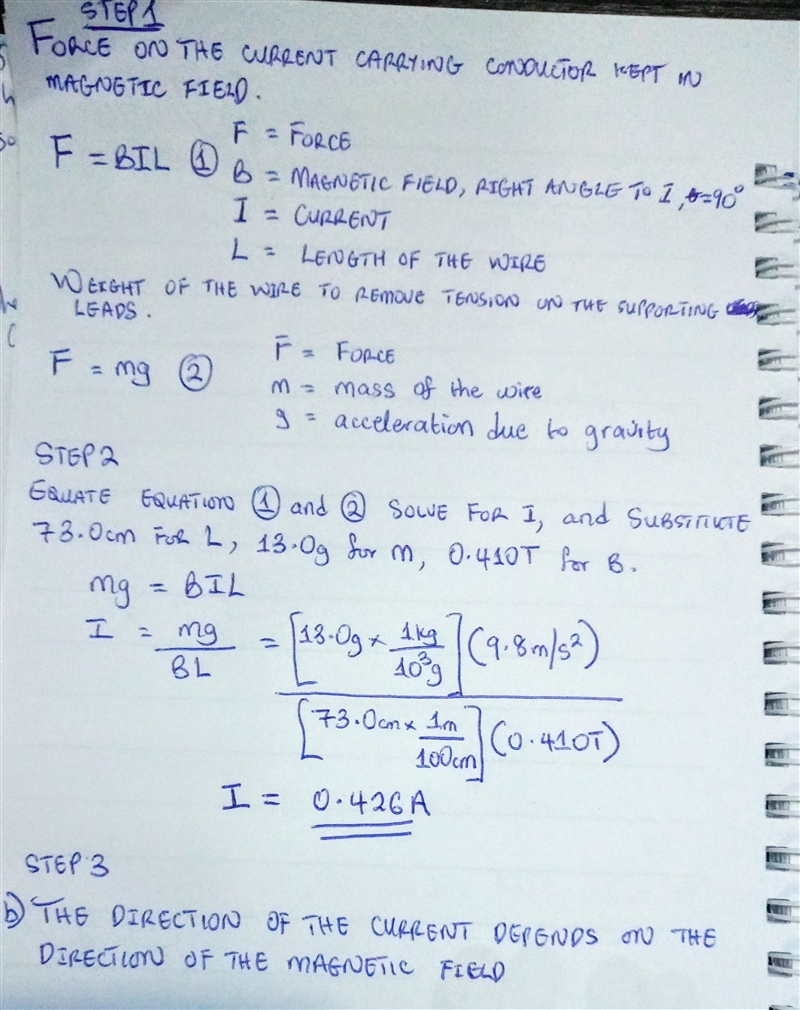 STEP 1
FORCE ON THE CURRENT CARRYING CONDUCTOR KEPT IN
MAGNETIC FIELD.
F = BIL ①
F = FORCE
B = MAGNETIC FIELD, RIGHT ANGLE TO I, θ=90°
I = CURRENT
L = LENGTH OF THE WIRE
WEIGHT OF THE WIRE TO REMOVE TENSION ON THE SUPPORTING
LEADS.
F = mg ②
F = FORCE
m = mass of the wire
g = acceleration due to gravity
STEP 2
EQUATE EQUATION ① and ② SOLVE FOR I, and SUBSTITUTE
73.0cm FOR L, 13.0g for m, 0.410T for B.
mg = BIL
I = mg/BL = [13.0g × 1kg/10³g](9.8m/s²) / [73.0cm × 1m/100cm](0.410T)
I = 0.426A
STEP 3
b) THE DIRECTION OF THE CURRENT DEPENDS ON THE
DIRECTION OF THE MAGNETIC FIELD